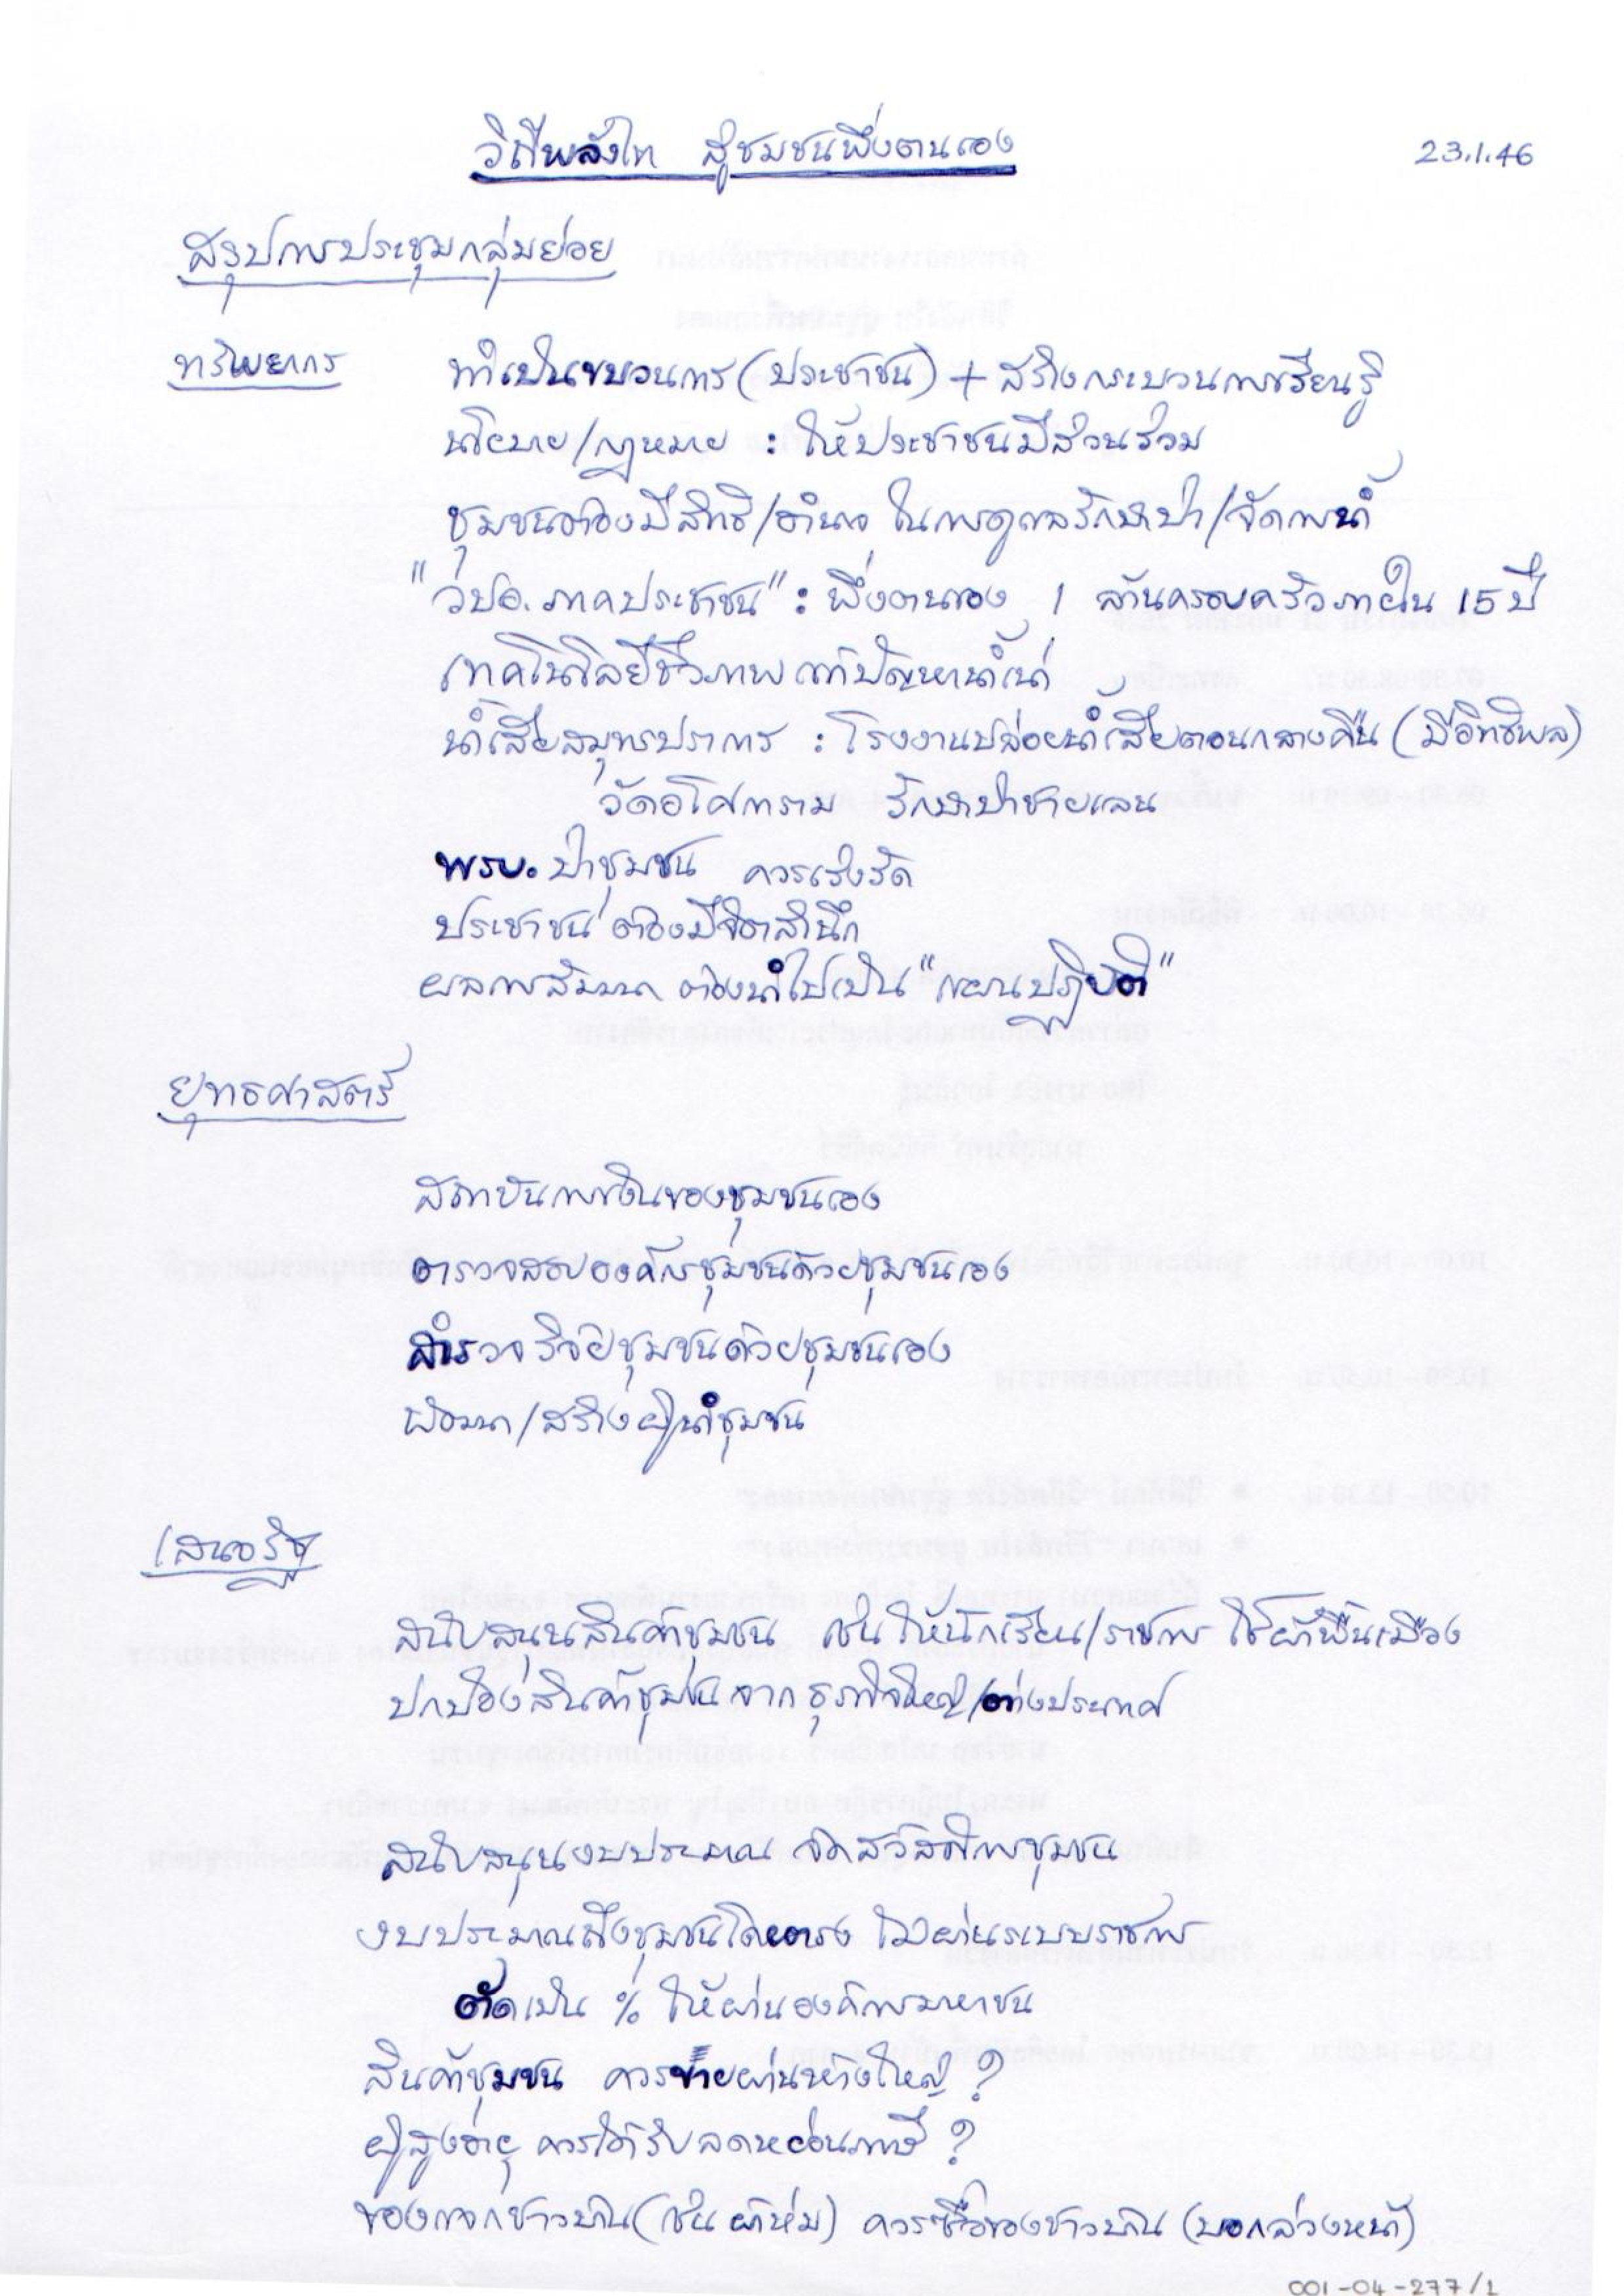 วิถีพลังไท สู่ชุมชนพึ่งตนเอง
23.1.46
สรุปการประชุมกลุ่มย่อย
ทรัพยากร ทำเป็นขบวนการ (ประชาชน) + สร้างกระบวนการเรียนรู้
นโยบาย/กฎหมาย : ให้ประชาชนมีส่วนร่วม
ชุมชนต้องมีสิทธิ/อำนาจ ในการดูแลรักษาป่า/จัดการน้ำ
"วปอ.ภาคประชาชน" : พึ่งตนเอง 1 ล้านครอบครัวภายใน 15 ปี
เทคโนโลยีชีวภาพ แก้ปัญหาน้ำเน่า
น้ำเสียสมุทรปราการ : โรงงานปล่อยน้ำเสียตอนกลางคืน (มีอิทธิพล)
วัดอโศการาม รักษาป่าชายเลน
พรบ. ป่าชุมชน ควรเร่งรัด
ประชาชนต้องมีจิตสำนึก
ผลการสัมมนา ต้องนำไปเป็น "แผนปฏิบัติ"
ยุทธศาสตร์
สถาบันการเงินของชุมชนเอง
ตรวจสอบองค์กรชุมชนด้วยชุมชนเอง
สำรวจ วิจัยชุมชนด้วยชุมชนเอง
พัฒนา/สร้างผู้นำชุมชน
เสนอรัฐ
สนับสนุนสินค้าชุมชน เช่น ให้นักเรียน/ราชการ ใช้ผ้าพื้นเมือง
ปกป้องสินค้าชุมชน จากธุรกิจใหญ่/ต่างประเทศ
สนับสนุนงบประมาณ จัดสวัสดิการชุมชน
งบประมาณถึงชุมชนโดยตรง ไม่ผ่านระบบราชการ
ตัดเป็น % ให้ผ่านองค์การมหาชน
สินค้าชุมชน ควรขายผ่านห้างใหญ่ ?
ผู้สูงอายุ ควรได้รับลดหย่อนภาษี ?
ของแจกชาวบ้าน (เช่น ผ้าห่ม) ควรซื้อของชาวบ้าน (บอกล่วงหน้า)
001-04-277/1